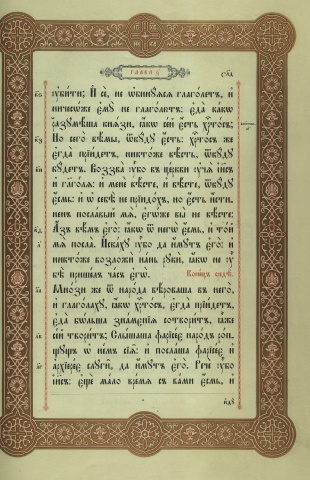 ГЛАВА З҃
сн҃д
ᲂу҆би́ти; И҆ сѐ, не ѡ҆бинꙋ́ѧсѧ глаго́летъ, и҆
ничесѡ́же є҆мꙋ̀ не глаго́лютъ: є҆да̀ ка́кѡ
разꙋмѣ́ша кнѧ̑зи, ꙗ҆́кѡ се́й є҆́сть хрⷭ҇то́съ;
Но сего̀ вѣ́мы, ѿкꙋ́дꙋ є҆́сть: хрⷭ҇то́съ же
є҆гда̀ прїи́детъ, никто́же вѣ́сть, ѿкꙋ́дꙋ
бꙋ́детъ. Воззва̀ ᲂу҆̀бо въ це́ркви ᲂу҆чѧ̀ і҆и҃съ
и҆ гл҃го́лѧ: и҆ менѐ вѣ́сте, и҆ вѣ́сте, ѿкꙋ́дꙋ
є҆́смь: и҆ ѡ҆ себѣ̀ не прїидо́хъ, но є҆́сть и҆́сти-
ненъ посла́вый мѧ̀, є҆гѡ́же вы̀ не вѣ́сте:
А҆́зъ вѣ́мъ є҆го̀, ꙗ҆́кѡ ѿ негѡ̀ є҆́смь, и҆ то́й
мѧ̀ посла̀. И҆ска́хꙋ ᲂу҆̀бо да и҆́мꙋтъ є҆го̀: и҆
никто́же возложѝ на́нь рꙋкѝ, ꙗ҆́кѡ не ᲂу҆̀
бѣ̀ прише́лъ ча́съ є҆гѡ̀.
Коне́цъ средѣ̀.
Мно́зи же ѿ наро́да вѣ́роваша въ него̀,
и҆ глаго́лахꙋ, ꙗ҆́кѡ хрⷭ҇то́съ, є҆гда̀ прїи́детъ,
є҆да̀ бѡ́льша зна́мєнїѧ сотвори́тъ, ꙗ҆̀же
се́й твори́тъ; Слы́шаша фарїсе́є наро́дъ роп-
щꙋ́щъ ѡ҆ не́мъ сїѧ̑: и҆ посла́ша фарїсе́є и҆
а҆рхїере́є слꙋги̑, да и҆́мꙋтъ є҆го̀. Речѐ ᲂу҆̀бо
і҆и҃съ: є҆щѐ ма́ло вре́мѧ съ ва́ми є҆́смь, и҆
и҆дꙋ̀